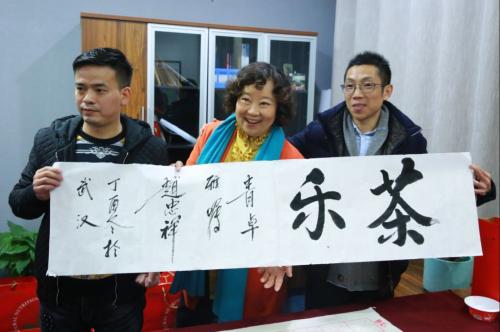 茶乐
青卓
雅嘱
趙忠祥
丁酉冬於
武汉